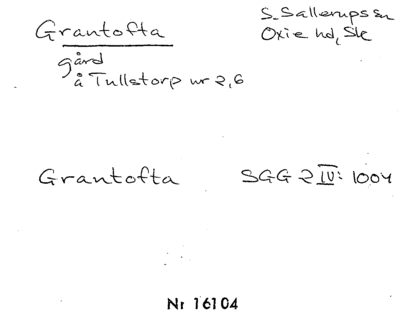 Grantofta
S. Sallerups sn
Oxie hd, Sk
gård
å Tullstorp nr 2,6
Grantofta SGG 2 IV: 1004
Nr 16104